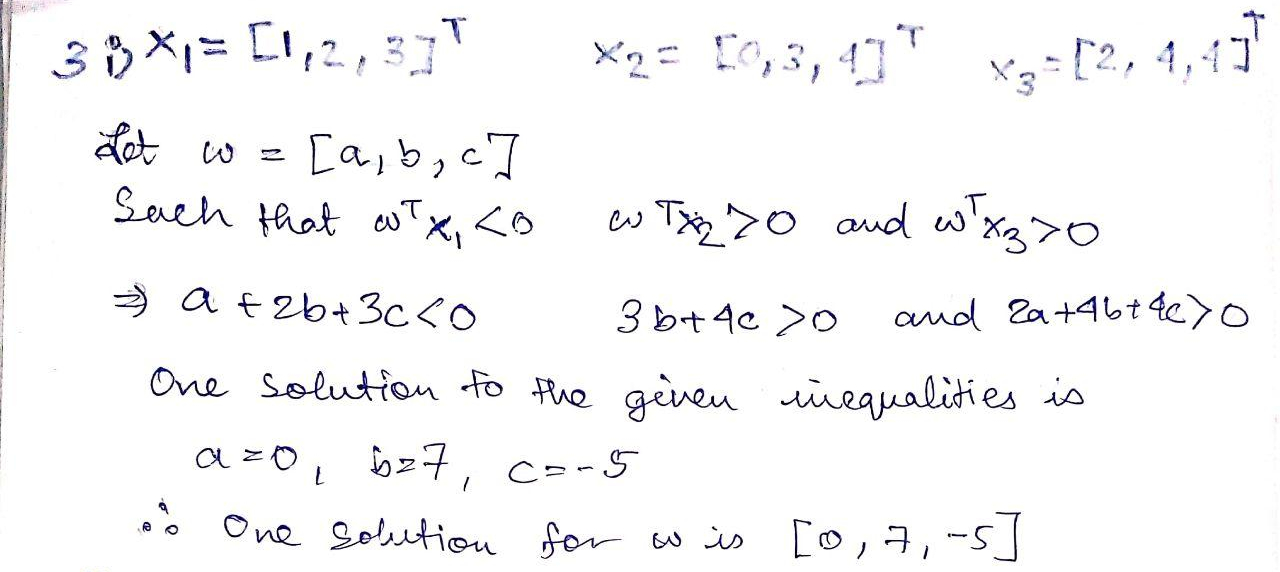 3) X₁ = [1, 2, 3]ᵀ X₂ = [0, 3, 4]ᵀ X₃ = [2, 4, 4]ᵀ
Let w = [a, b, c]
Such that wᵀx₁ < 0 wᵀx₂ > 0 and wᵀx₃ > 0
⇒ a + 2b + 3c < 0 3b + 4c > 0 and 2a + 4b + 4c > 0
One solution to the given inequalities is
a = 0, b = 7, c = -5
∴ One solution for w is [0, 7, -5]